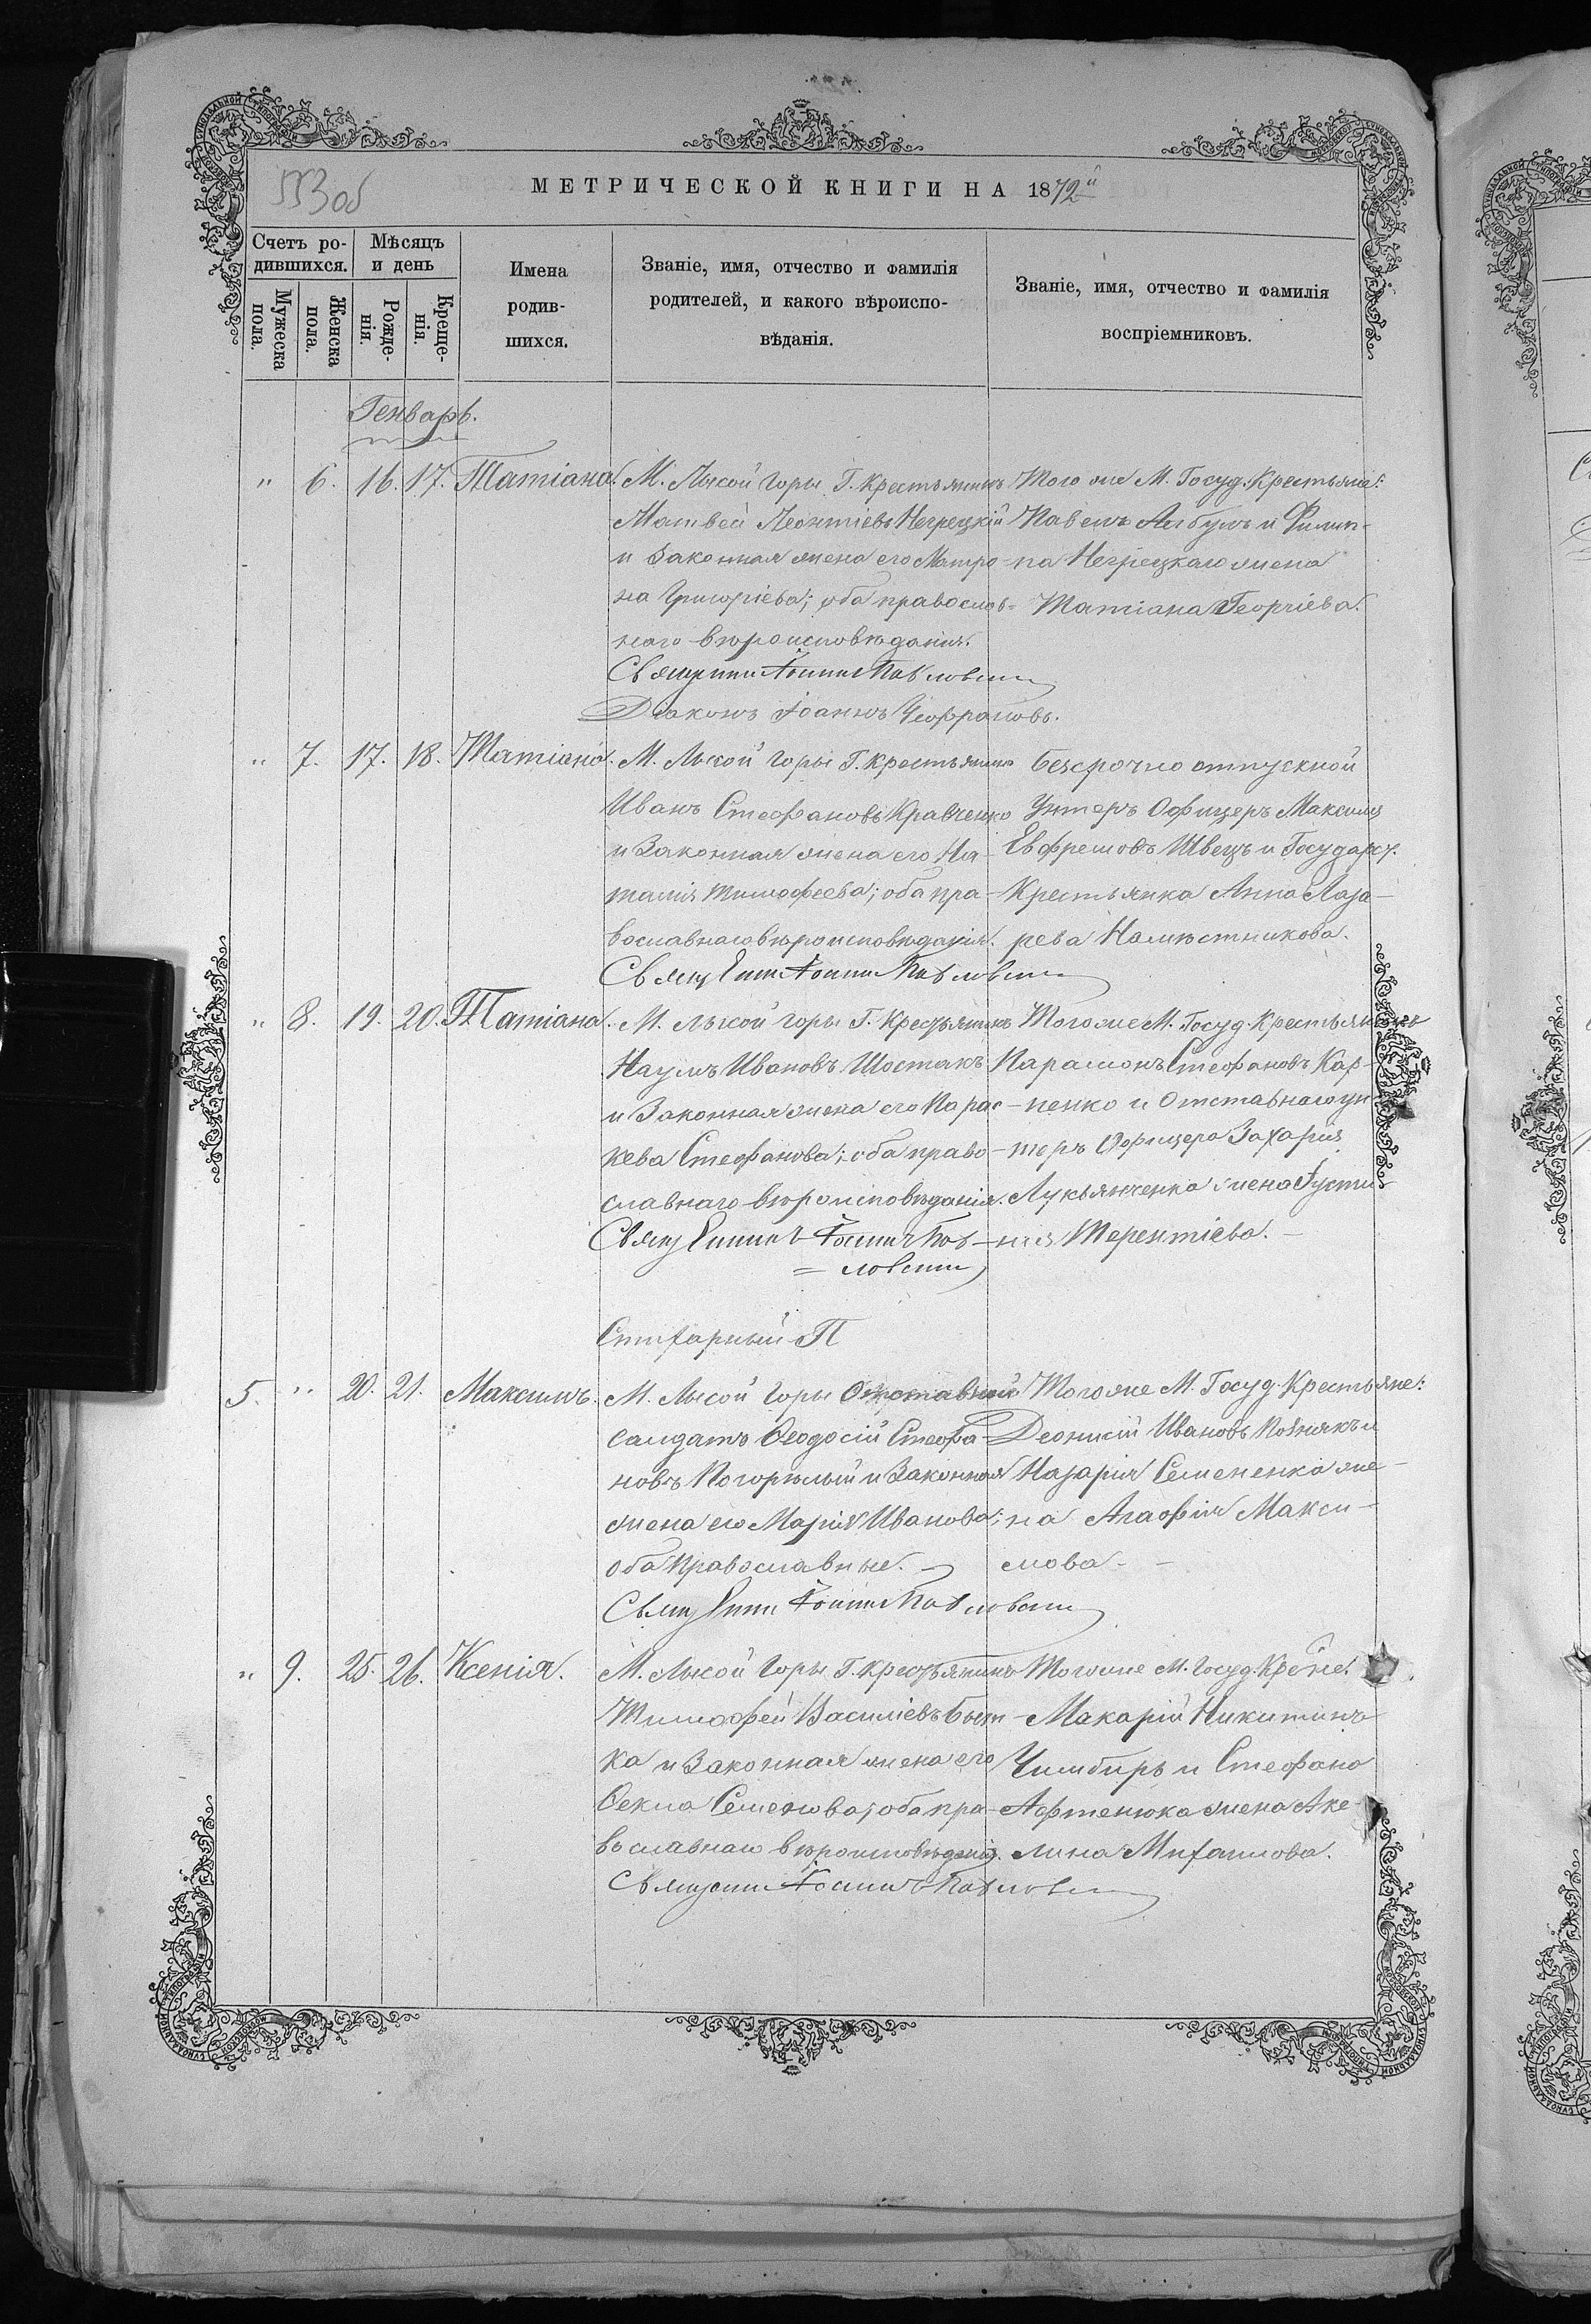 553об
МЕТРИЧЕСКОЙ КНИГИ НА 1872й
Счетъ ро-
дившихся.
Мѣсяцъ
и день
Мужеска
пола.
Женска
пола.
Рожде-
нія.
Креще-
нія.
Имена
родив-
шихся.
Званіе, имя, отчество и фамилія
родителей, и какого вѣроиспо-
вѣданія.
Званіе, имя, отчество и фамилія
воспріемниковъ.
Генварь.
" 6. 16. 17. Татіана.
М. Лысой Горы Г. Крестьянинъ
Матвей Леонтіевъ Негрецкій
и Законная жена его Матро-
на Григоріева; оба православ-
наго вѣроисповѣданія.
Діаконъ Іоаннъ
Того же М. Госуд. Крестьяне:
Павелъ Албулъ и Филип-
па Негрецкаго жена
Татіана Георгіева.
" 7. 17. 18. Татіана.
М. Лысой Горы Г. Крестьянинъ
Иванъ Стефановъ Кравченко
и Законная жена его На-
талія Тимофеева; оба пра-
вославнаго вѣроисповѣданія.
Безсрочно отпускной
Унтеръ Офицеръ Максимъ
Евфремовъ Швецъ и Государ.
Крестьянка Анна Лаза-
рева Намѣстникова.
" 8. 19. 20. Татіана.
М. Лысой Горы Г. Крестьянинъ
Наумъ Ивановъ Шостакъ
и Законная жена его Парас-
кева Стефанова; оба право-
славнаго вѣроисповѣданія.
Того же М. Госуд. Крестьянинъ
Парамонъ Стефановъ Кар-
пенко и Отставнаго ун-
теръ Офицера Захарія
Лукьянченка жена Іусти-
нія Терентіева.
5. " 20. 21. Максимъ.
М. Лысой Горы Отставной
салдатъ Ѳеодосій Стефа-
новъ Погорѣлый и Законная
жена его Марія Иванова;
оба православные.
Того же М. Госуд. Крестьяне:
Деонисій Ивановъ Познякъ и
Назарія Семененка же-
на Агафія Макси-
мова.
" 9. 25. 26. Ксенія.
М. Лысой Горы Г. Крестьянинъ
Тимофей Василіевъ
ка и Законная жена его
Ѳекла Семенова; оба пра-
вославнаго вѣроисповѣданія.
Того же М. Госуд.
Макарій Никитинъ
Чимбиръ и Стефана
Афтенюка жена Аке-
лина Михаилова.